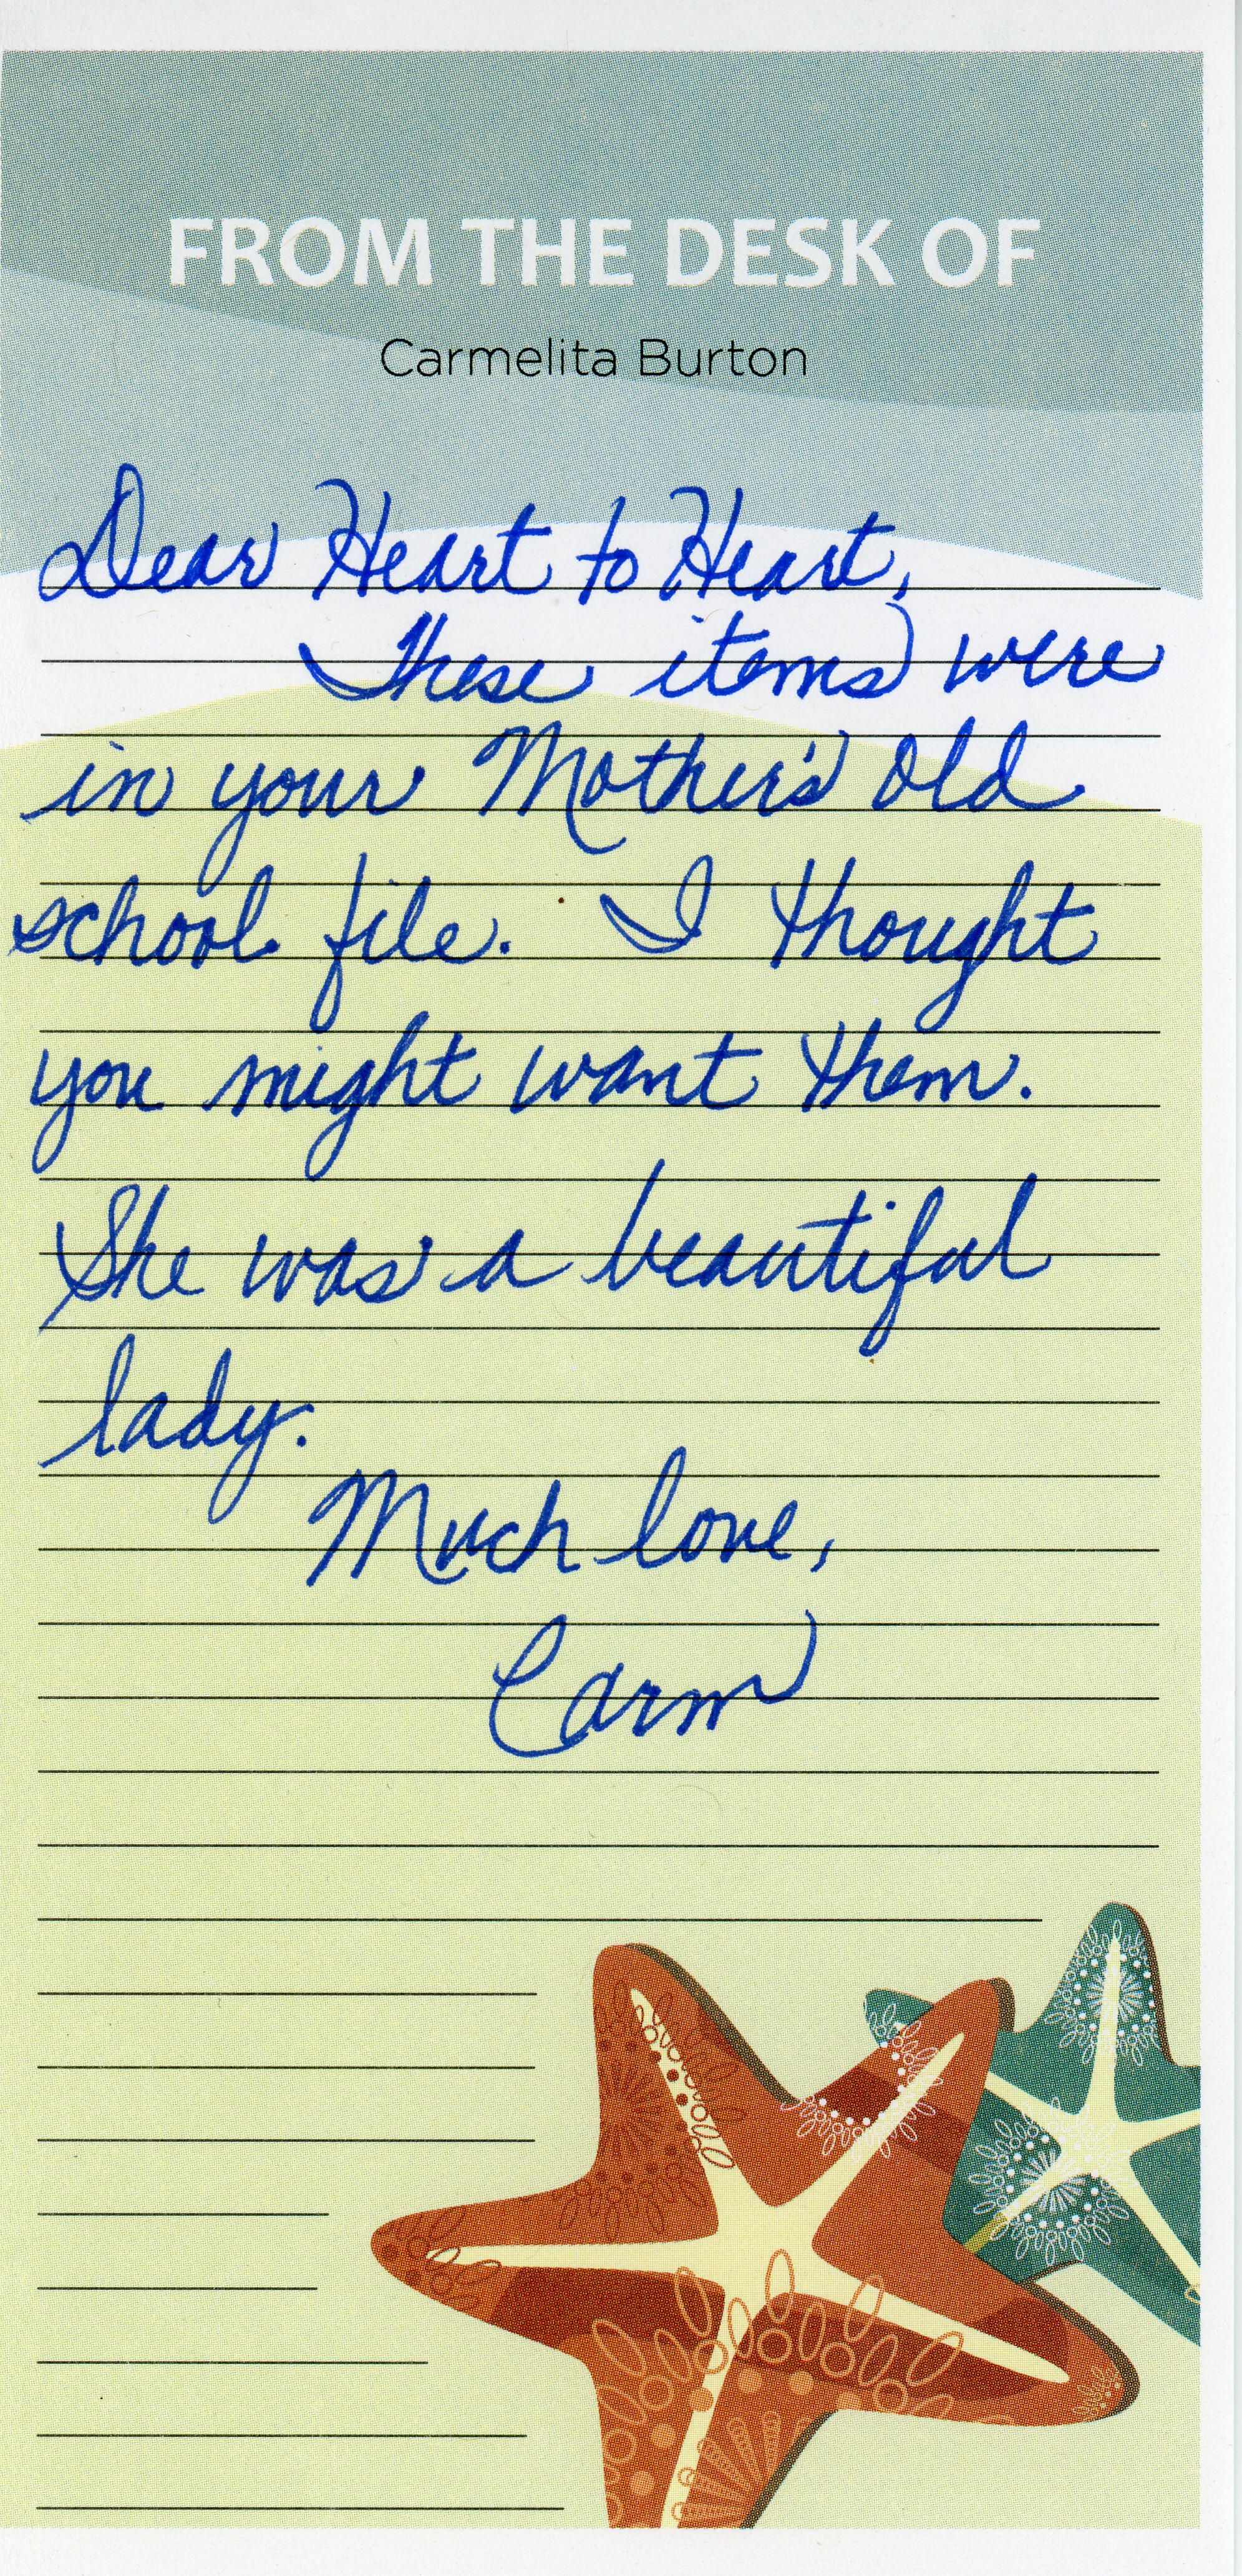 FROM THE DESK OF
Carmelita Burton
Dear Heart to Heart,
These items were
in your Mother's old
school file. I thought
you might want them.
She was a beautiful
lady.
Much love,
Carm